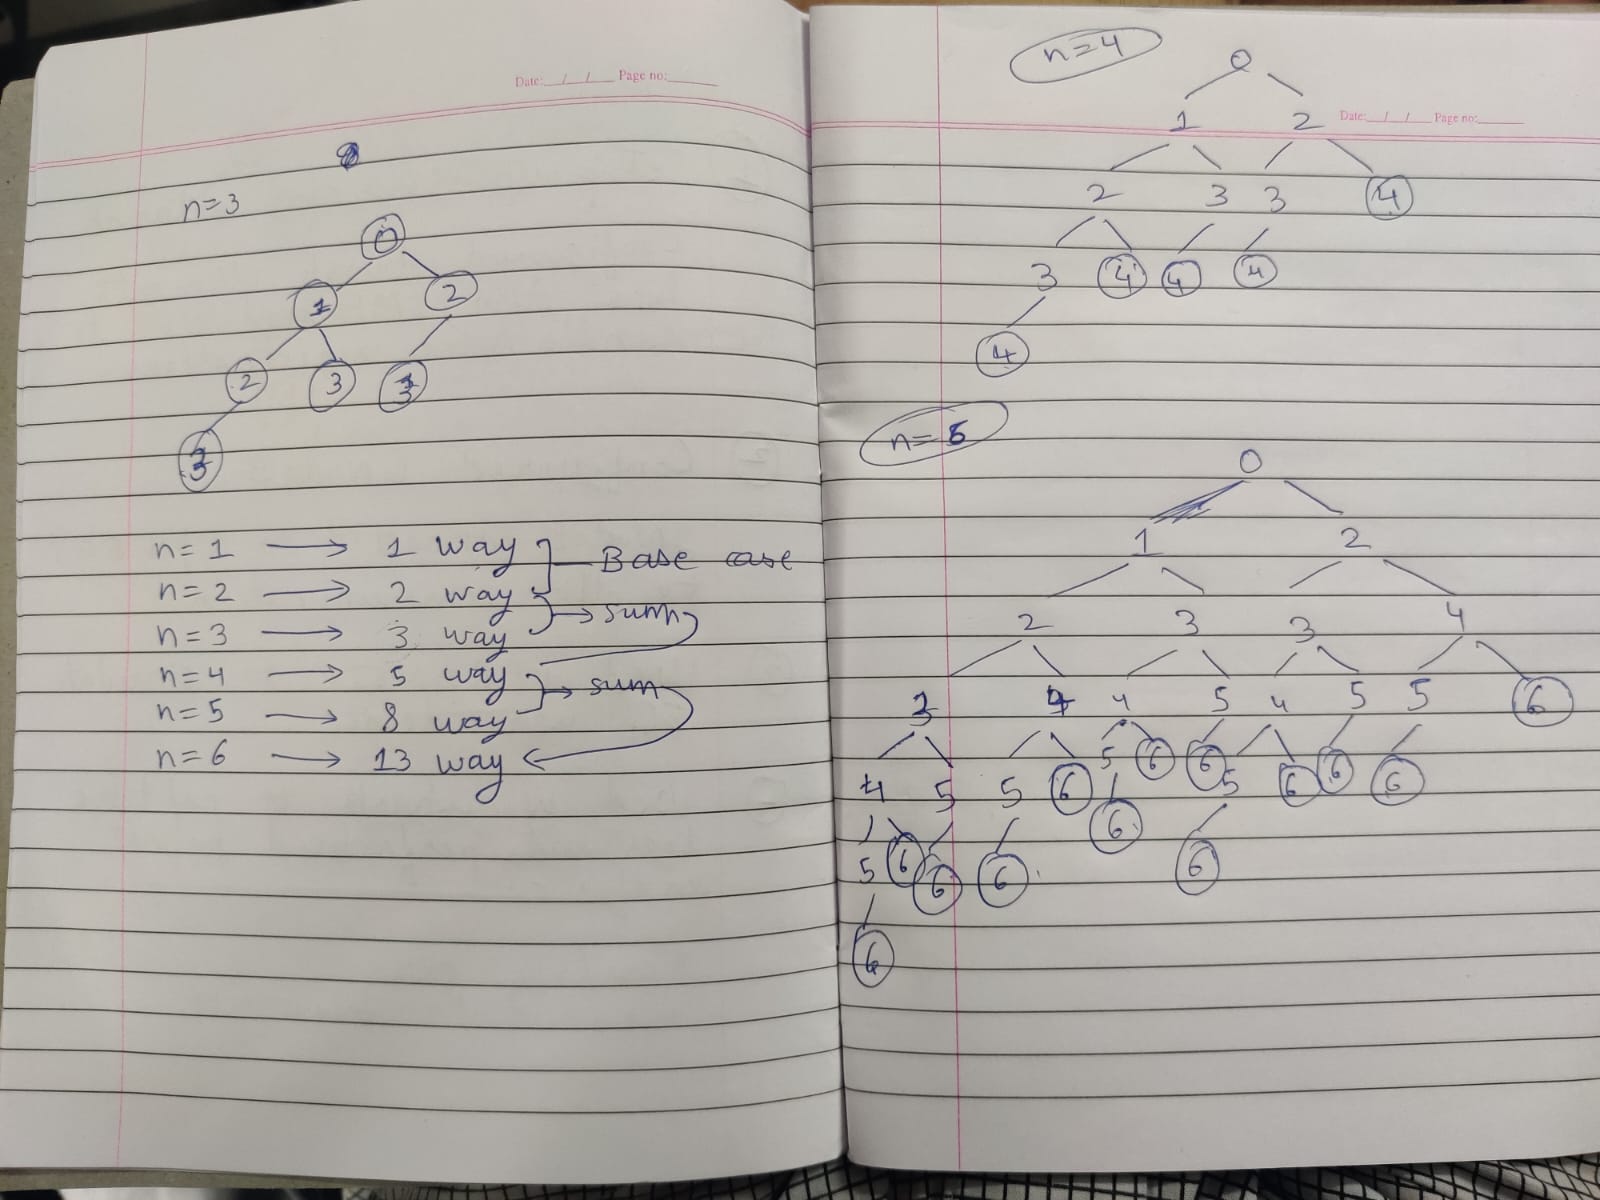 Date: / / Page no:
n=3
0
1 2
2 3 3
3
n=1 → 1 way
Base case
n=2 → 2 way
sum
n=3 → 3 way
n=4 → 5 way
sum
n=5 → 8 way
n=6 → 13 way
n=4
0
Date: / / Page no:
1 2
2 3 3 4
3 4 4 4
4
n=6
0
1 2
2 3 3 4
3 4 4 5 4 5 5 6
4 5 5 6 5 6 6 5 6 6 6
5 6 6 6 6 6
6